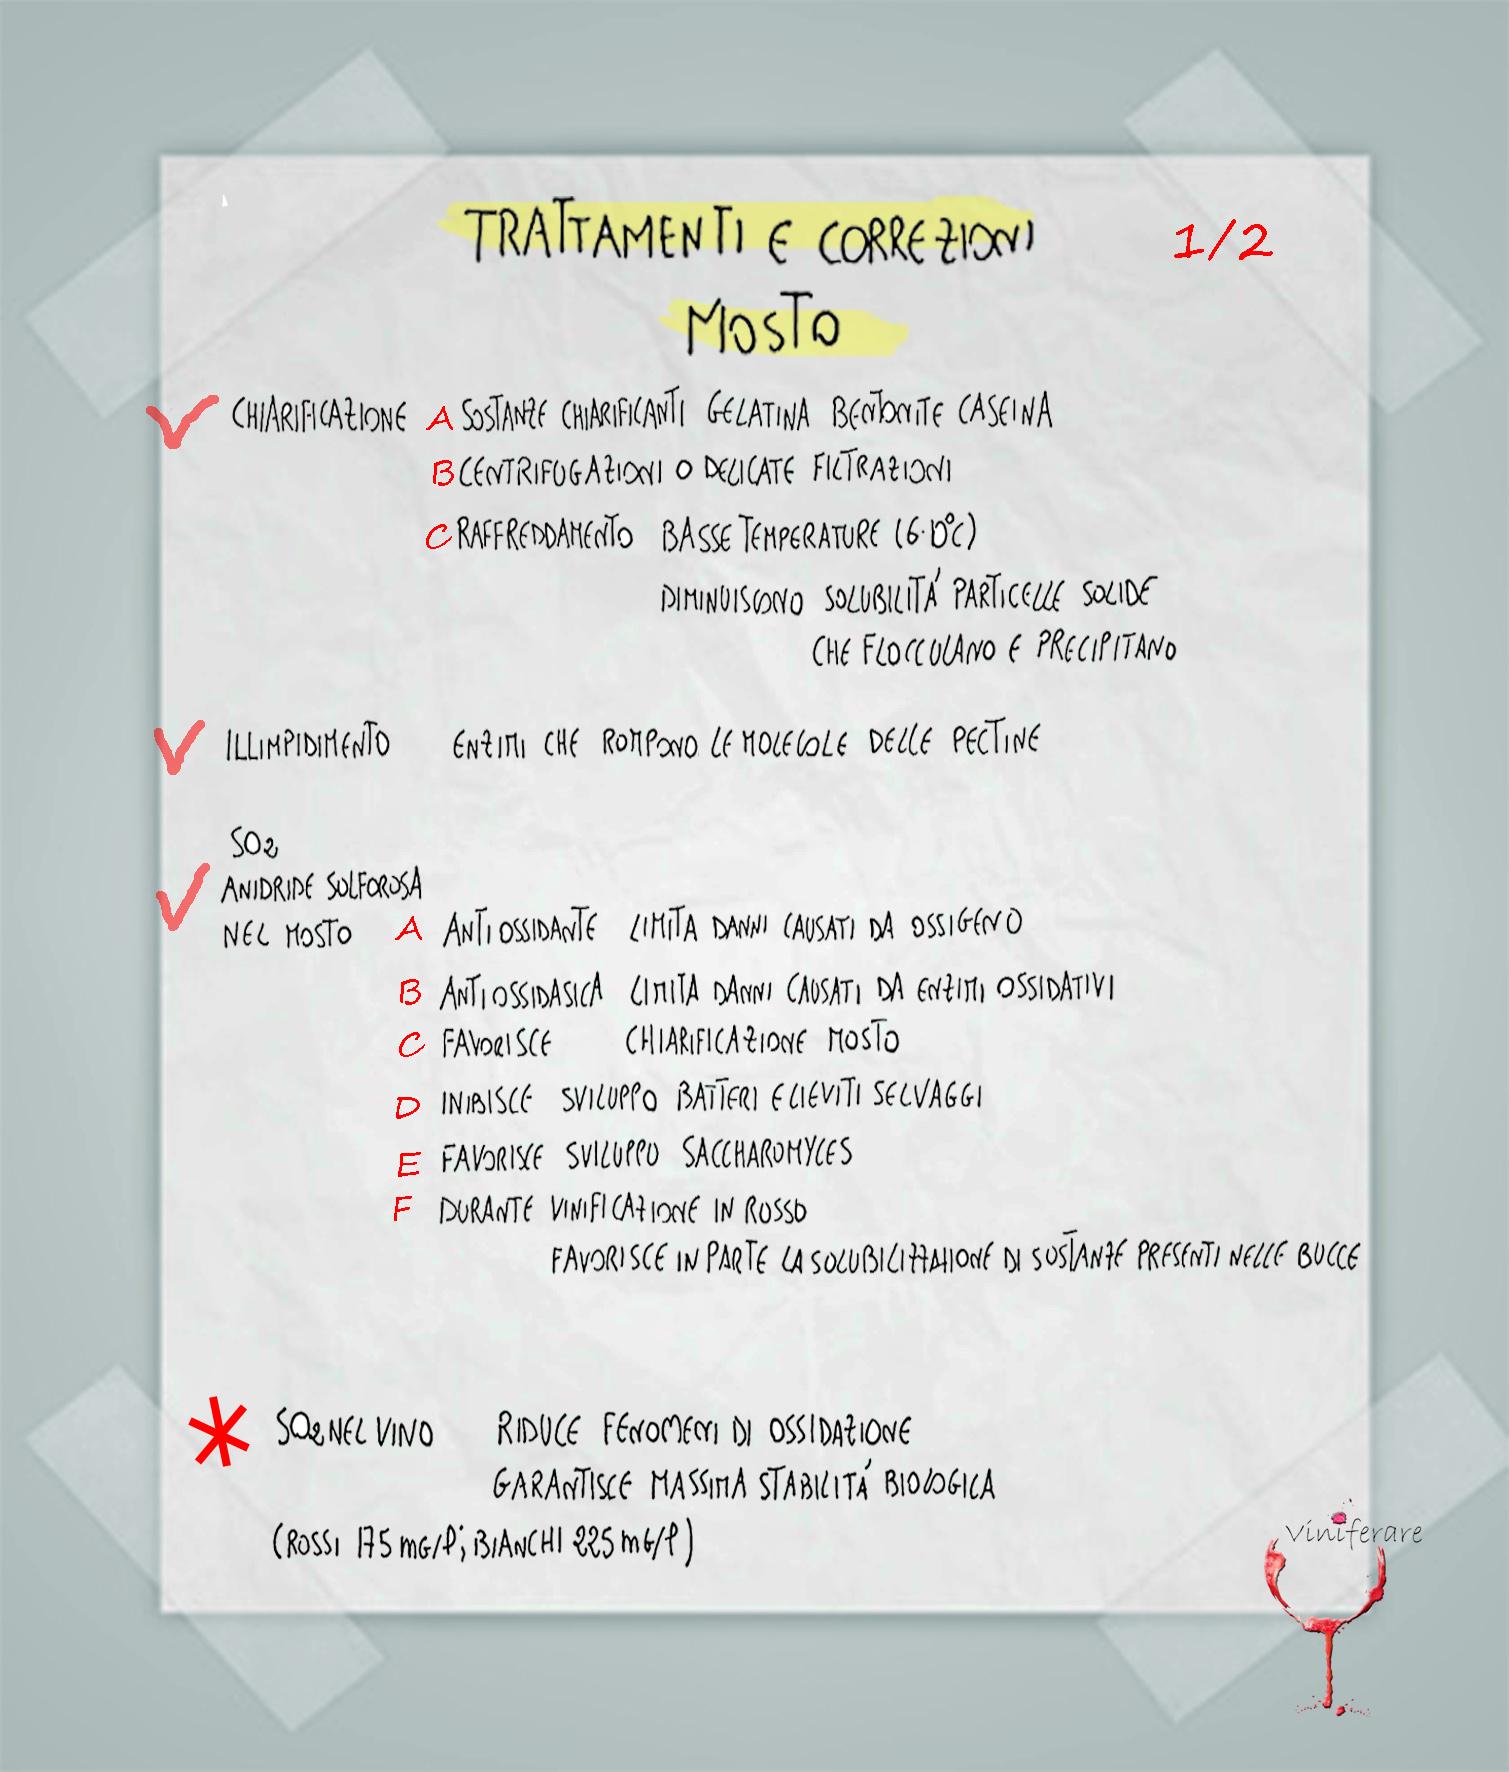 TRATTAMENTI E CORREZIONI 1/2
MOSTO
CHIARIFICAZIONE A SOSTANZE CHIARIFICANTI GELATINA BENTONITE CASEINA
B CENTRIFUGAZIONI O DELICATE FILTRAZIONI
C RAFFREDDAMENTO BASSE TEMPERATURE (6-10°C)
DIMINUISCONO SOLUBILITÁ PARTICELLE SOLIDE
CHE FLOCCULANO E PRECIPITANO
ILLIMPIDIMENTO ENZIMI CHE ROMPONO LE MOLECOLE DELLE PECTINE
SO2
ANIDRIDE SOLFOROSA
NEL MOSTO A ANTIOSSIDANTE LIMITA DANNI CAUSATI DA OSSIGENO
B ANTIOSSIDASICA LIMITA DANNI CAUSATI DA ENZIMI OSSIDATIVI
C FAVORISCE CHIARIFICAZIONE MOSTO
D INIBISCE SVILUPPO BATTERI E LIEVITI SELVAGGI
E FAVORISCE SVILUPPO SACCHAROMYCES
F DURANTE VINIFICAZIONE IN ROSSO
FAVORISCE IN PARTE LA SOLUBILIZZAZIONE DI SOSTANZE PRESENTI NELLE BUCCE
* SO2 NEL VINO RIDUCE FENOMENI DI OSSIDAZIONE
GARANTISCE MASSIMA STABILITÁ BIOLOGICA
(ROSSI 175 mG/l; BIANCHI 225 mG/l)
Viniferare